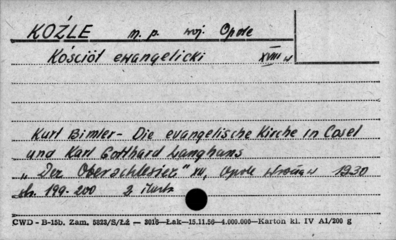 KOŹLE m. p. woj. Opole
Kościół ewangelicki XVIII w
Kurt Bimler - Die evangelische Kirche in Cosel
und Karl Gotthard Langhans
"Der Oberschlesier" XII, Opole 1930
str. 199-200 2 ilustr
CWD - B-15b. Zam. 5223/S/Łż — 2015—Łak—15.11.56—4.000.000—Karton kl. IV A1/200 g